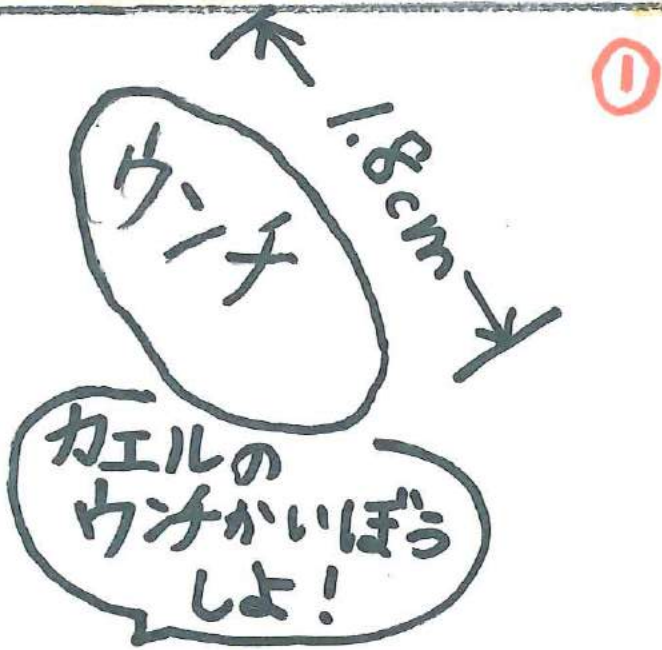 ①
1.8cm
ウンチ
カエルの
ウンチかいぼう
しよ!